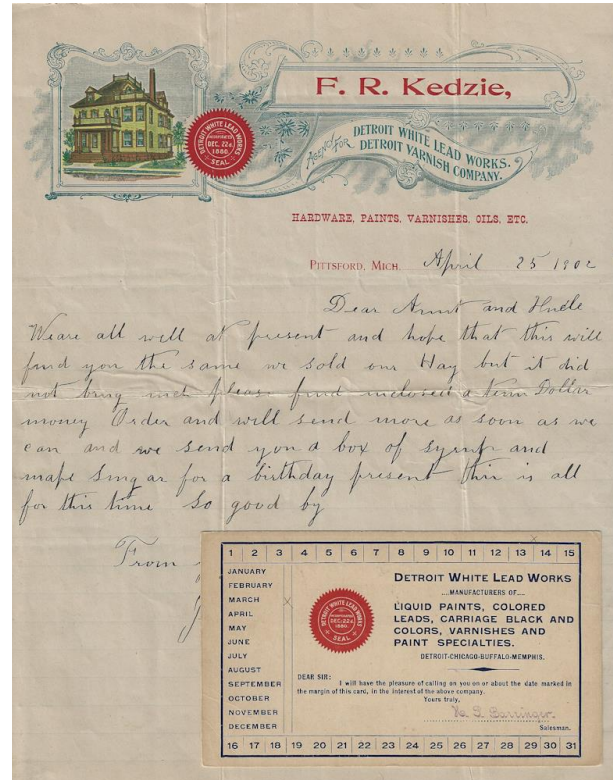 F. R. Kedzie,
AGENCY FOR
DETROIT WHITE LEAD WORKS.
DETROIT VARNISH COMPANY.
DETROIT WHITE LEAD WORKS
INCORPORATED
DEC. 22d.
1880.
SEAL
HARDWARE, PAINTS, VARNISHES, OILS, ETC.
PITTSFORD, MICH. April 25 1902
Dear Aunt and Uncle
We are all well at present and hope that this will
find you the same we sold our Hay but it did
not bring much please find inclosed a Dollar
money Order and will send more as soon as we
can and we send you a box of syrup and
for a birthday present this is all
for this time So good by
From
1 2 3 4 5 6 7 8 9 10 11 12 13 14 15
JANUARY
FEBRUARY
MARCH
APRIL
MAY
JUNE
JULY
AUGUST
SEPTEMBER
OCTOBER
NOVEMBER
DECEMBER
DETROIT WHITE LEAD WORKS
INCORPORATED
DEC. 22d.
1880.
SEAL
DETROIT WHITE LEAD WORKS
....MANUFACTURERS OF....
LIQUID PAINTS, COLORED
LEADS, CARRIAGE BLACK AND
COLORS, VARNISHES AND
PAINT SPECIALTIES.
DETROIT-CHICAGO-BUFFALO-MEMPHIS.
DEAR SIR:
I will have the pleasure of calling on you on or about the date marked in
the margin of this card, in the interest of the above company.
Yours truly,
Barringer.
Salesman.
16 17 18 19 20 21 22 23 24 25 26 27 28 29 30 31